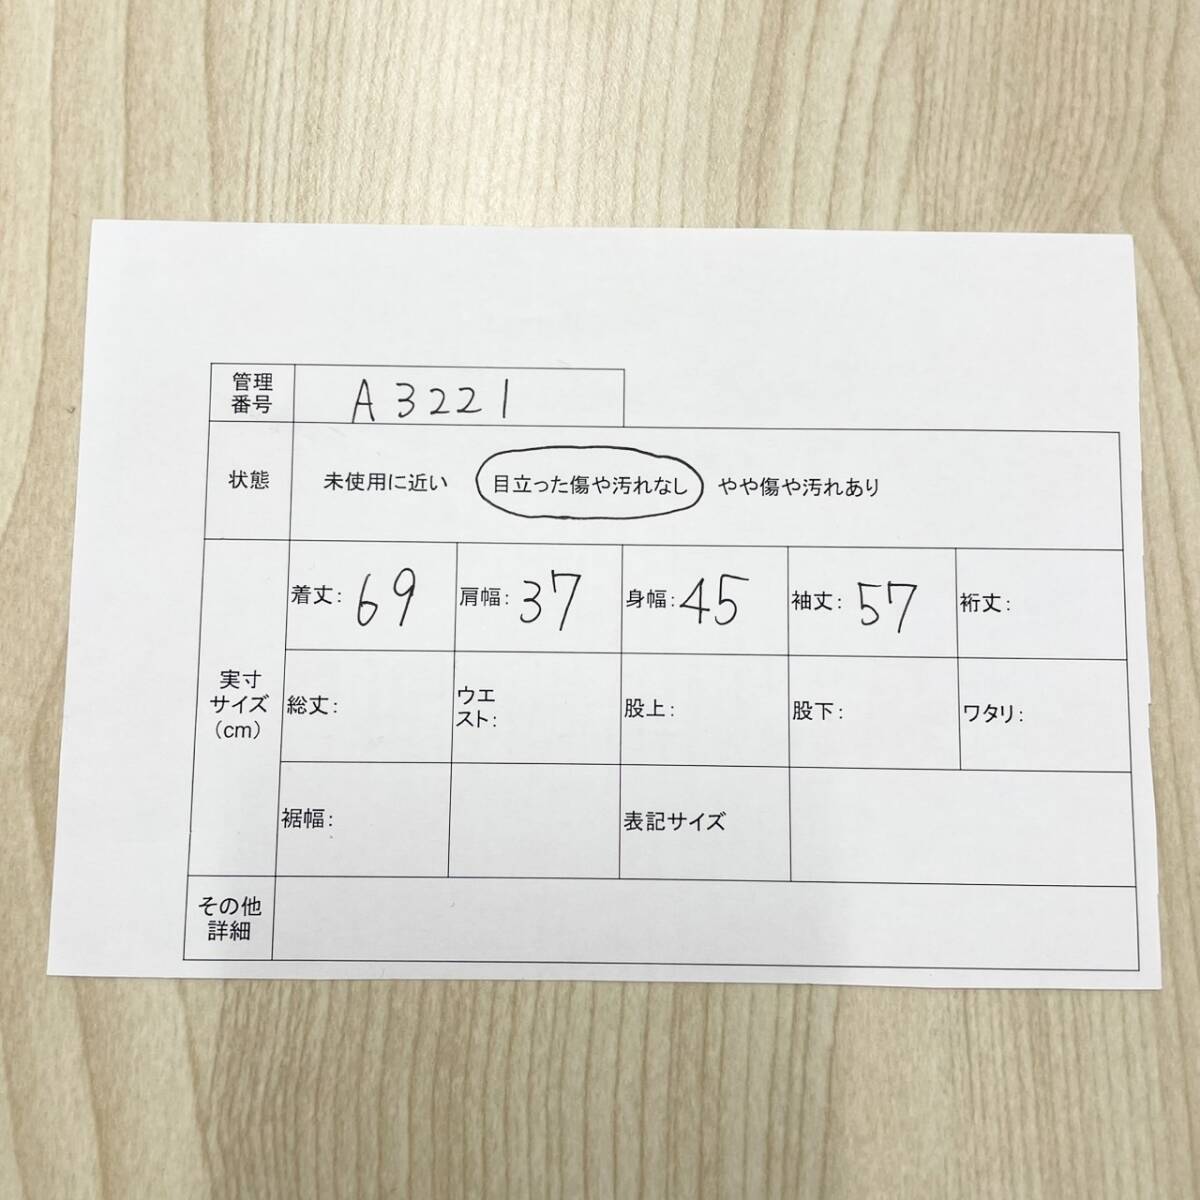 管理
番号
A3221
状態
未使用に近い 目立った傷や汚れなし やや傷や汚れあり
実寸
サイズ
(cm)
着丈: 69 肩幅: 37 身幅: 45 袖丈: 57 裄丈:
総丈: ウエ
スト: 股上: 股下: ワタリ:
裾幅: 表記サイズ
その他
詳細